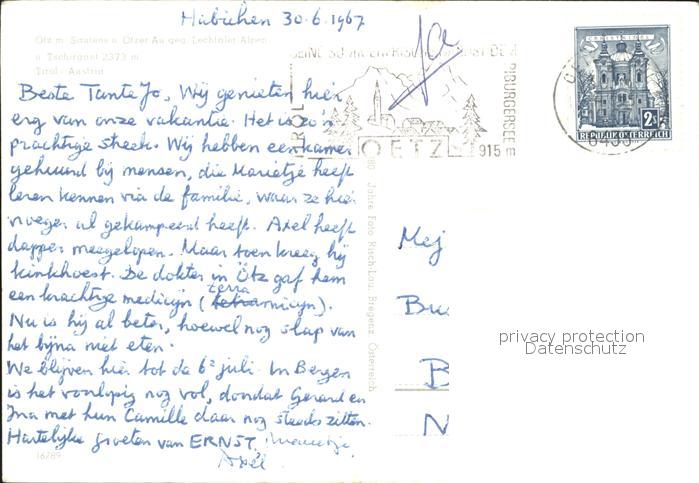 Habichen 30.6.1967
Ötz m. Sautens u. Ötzer Au geg. Lechtaler Alpen
u. Tschirgant 2373 m
Tirol - Austria
Beste Tante Jo, Wij genieten hier
erg van onze vakantie. Het is zo'n
prachtige streek. Wij hebben een kamer
gehuurd bij mensen, die Marietje heeft
leren kennen via de familie, waar ze hier
vroeger al gekampeerd heeft. Axel heeft
dapper meegelopen. Maar toen kreeg hij
kinkhoest. De dokter in Ötz gaf hem
een krachtige medicijn (terramicyn).
Nu is hij al beter, hoewel nog slap van
het bijna niet eten.
We blijven hier tot de 6e juli. In Bergen
is het voorlopig nog vol, doordat Gerard en
Ina met hun Camille daar nog steeds zitten.
Hartelijke groeten van ERNST, Marietje
Axel
16/89
Jahre Foto Risch-Lau, Bregenz Österreich
TIROL
OETZ
PIBURGERSEE
915 m
CHRISTKINDL
2S
REPUBLIK ÖSTERREICH
6433
Mej
Bu
B
N
privacy protection
Datenschutz